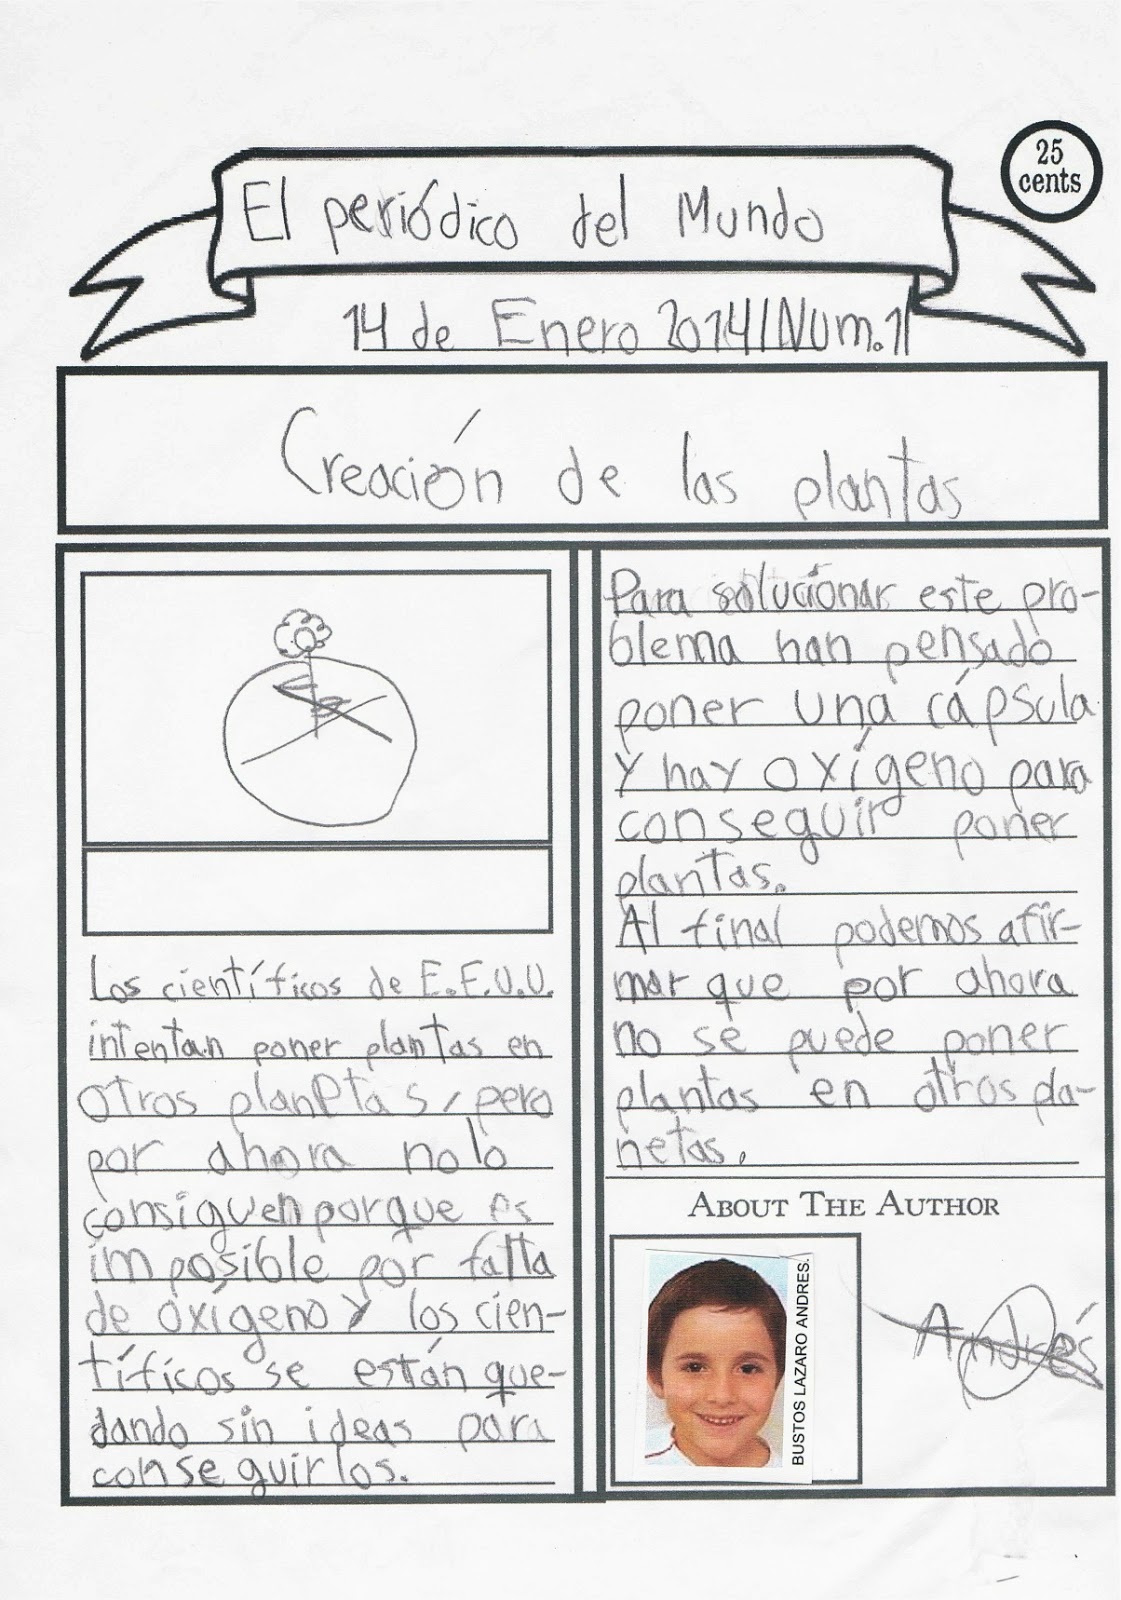 25
cents
El periódico del Mundo
14 de Enero 2014/Num.1
Creación de las plantas
Los científicos de E.E.U.U.
intentan poner plantas en
otros planetas, pero
por ahora no lo
consiguen porque es
imposible por falta
de oxígeno y los cien-
tíficos se están que-
dando sin ideas para
conseguirlos.
Para solucionar este pro-
blema han pensado
poner una cápsula
Y hay oxígeno para
conseguir poner
plantas.
Al final podemos afir-
mar que por ahora
no se puede poner
plantas en otros pla-
netas.
ABOUT THE AUTHOR
BUSTOS LAZARO ANDRES.
Andrés